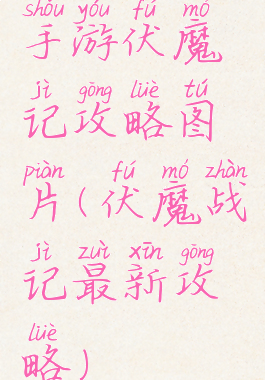 shǒu yóu fú mó
手游伏魔
jì gōng lüè tú
记攻略图
piàn fú mó zhàn
片(伏魔战
jì zuì xīn gōng
记最新攻
lüè
略)